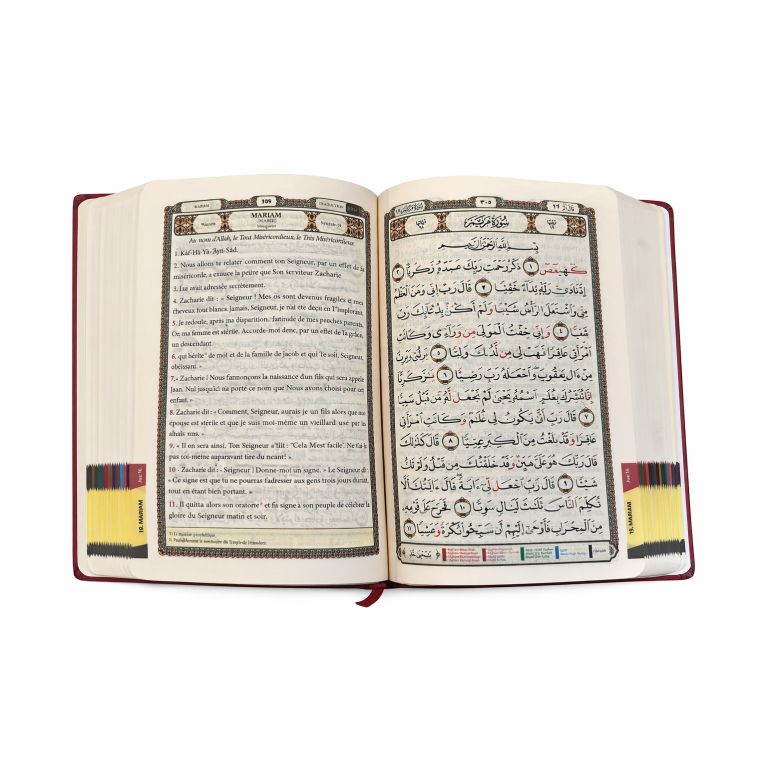 MARIAM
109
TRADUCTION
MARIAM
(MARIE)
Au nom d'Allah, le Tout Miséricordieux, le Très Miséricordieux
1. Kâf-Hâ-Yâ-'Ayn-Sâd.
2. Nous allons te relater comment ton Seigneur, par un effet de Sa
miséricorde, a exauce la peire que Son serviteur Zacharie
3. Lui avait adressée secrètement.
4. Zacharie dit : « Seigneur ! Mes os sont devenus fragiles et mes
cheveux tout blancs. Jamais, Seigneur, je n'ai été déçu en T'implorant.
5. Je redoule, après ma disparition, l'attitude de mes proches parents.
Or, ma femme est stérile. Accorde-moi donc, par un effet de Ta grâce,
un descendant
6. qui hérite de moi et de la famille de jacob et qui Te soit, Seigneur,
obéissant. »
7. « Zacharie ! Nous t'annonçons la naissance d'un fils qui sera appelé
Jaan. Nul jusqu'ici n'a porté ce nom que Nous avons choisi pour cet
enfant. »
8. Zacharie dit : « Comment, Seigneur, aurais je un fils alors que mon
épouse est stérile et que je suis moi-même un vieillard usé par les
ans. »
9. « Il en sera ainsi. Ton Seigneur a dit : "Cela M'est facile. Ne t'ai-Je
pas toi-même auparavant tiré du néant ! »
10 - Zacharie dit : - Seigneur ! Donne-moi un signe. » Le Seigneur dit :
« Ce signe est que tu ne pourras t'adresser aux gens trois jours durant,
tout en étant bien portant. »
11. Il quitta alors son oratorte et fit signe à son peuple de célébrer la
gloire du Seigneur matin et soir.
Juz 16
19. MARIAM
٣٠٥
سُورَةُ مَرْيَمَ
بِسْمِ اللَّهِ الرَّحْمَٰنِ الرَّحِيمِ
كهيعص ١ ذكر رحمت ربك عبده زكريا ٢
إذ نادى ربه نداء خفيا ٣ قال رب إني وهن العظم
مني واشتعل الرأس شيبا ولم أكن بدعائك رب
شقيا ٤ وإني خفت الموالي من وراءى وكانت
امرأتي عاقرا فهب لي من لدنك وليا ٥ يرثني ويرث
من ءال يعقوب واجعله رب رضيا ٦ يزكريا
إنا نبشرك بغلم اسمه يحيى لم نجعل له من قبل سميا
٧ قال رب أنى يكون لي غلم وكانت امرأتي
عاقرا وقد بلغت من الكبر عتيا ٨ قال كذلك
قال ربك هو على هين وقد خلقتك من قبل ولم تك
شيئا ٩ قال رب اجعل لي ءاية قال ءايتك ألا
تكلم الناس ثلث ليال سويا ١٠ فخرج على قومه
من المحراب فأوحى إليهم أن سبحوا بكرة وعشيا ١١
Juz 16
19. MARIAM